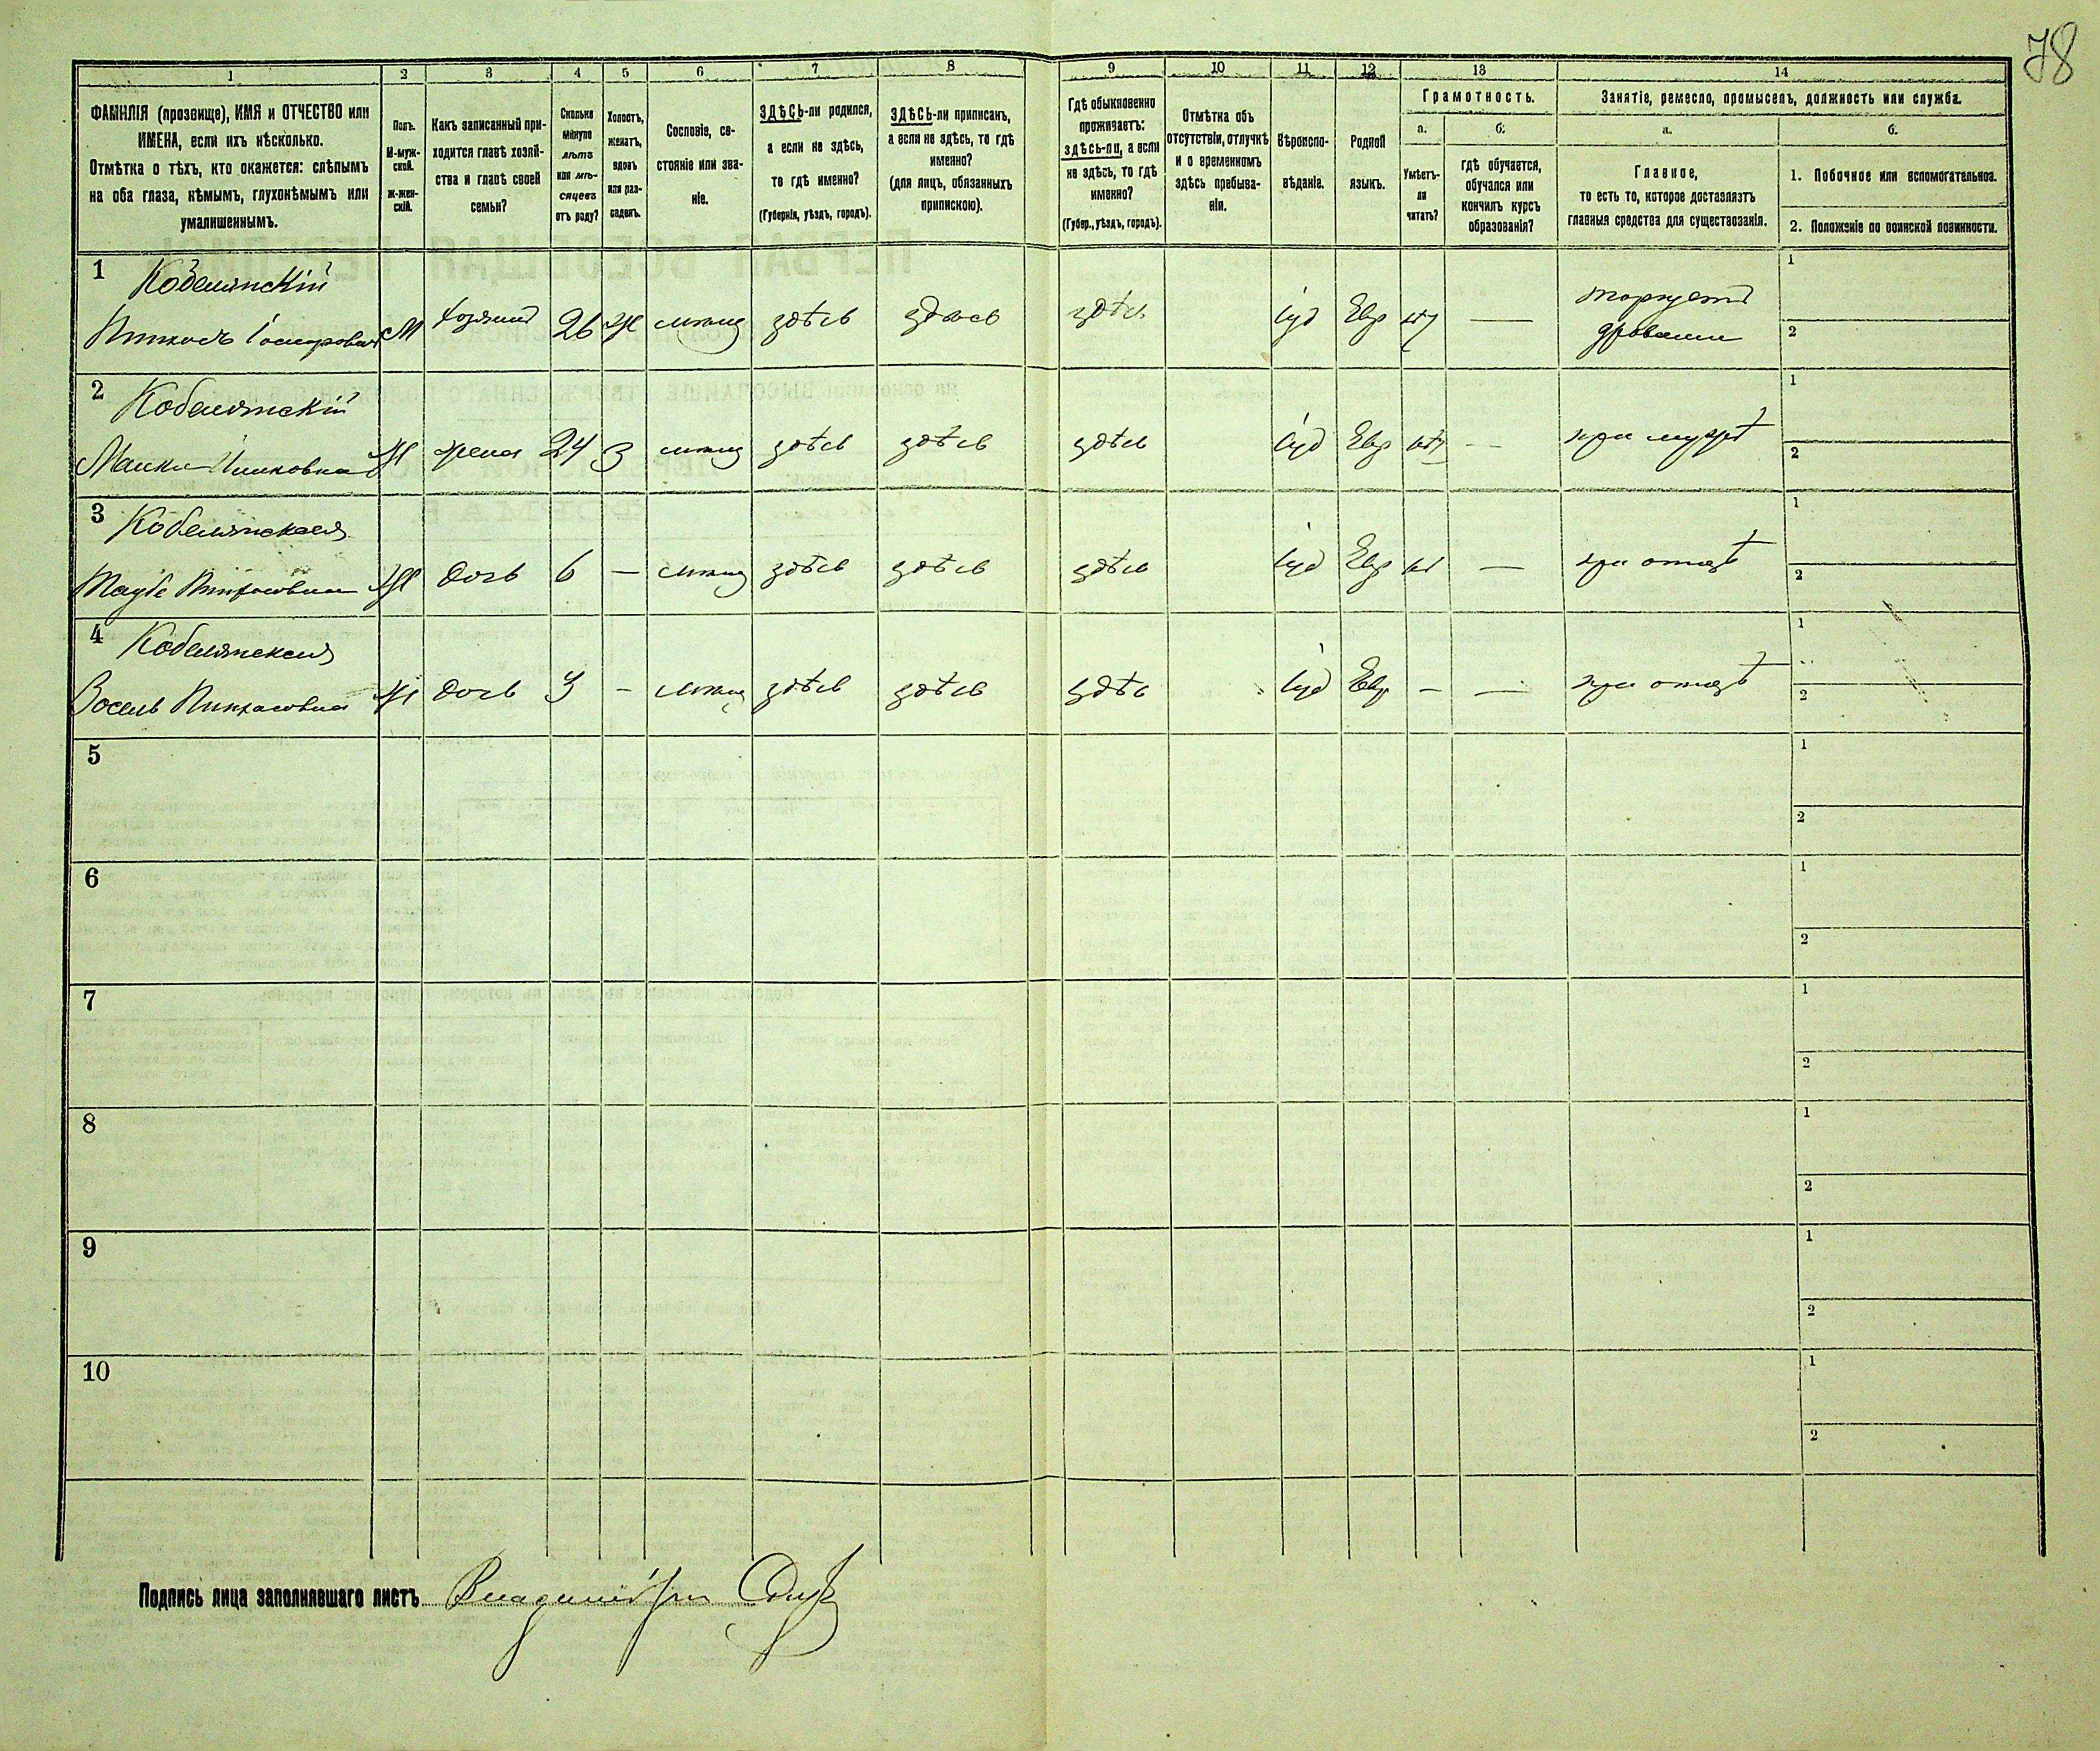 78
1 2 3 4 5 6 7 8 9 10 11 12 13 14
ФАМИЛІЯ (прозвище), ИМЯ и ОТЧЕСТВО или
ИМЕНА, если ихъ нѣсколько.
Отмѣтка о тѣхъ, кто окажется: слѣпымъ
на оба глаза, нѣмымъ, глухонѣмымъ или
умалишеннымъ.
Полъ.
М-муж-
ской.
Ж-жен-
скій.
Какъ записанный при-
ходится главѣ хозяй-
ства и главѣ своей
семьи?
Сколько
минуло
лѣтъ
или мѣ-
сяцевъ
отъ роду?
Холостъ,
женатъ,
вдовъ
или раз-
веденъ.
Сословіе, со-
стояніе или зва-
ніе.
ЗДѢСЬ-ли родился,
а если не здѣсь,
то гдѣ именно?
(Губернія, уѣздъ, городъ).
ЗДѢСЬ-ли приписанъ,
а если не здѣсь, то гдѣ
именно?
(для лицъ, обязанныхъ
припискою).
Гдѣ обыкновенно
проживаетъ:
здѣсь-ли, а если
не здѣсь, то гдѣ
именно?
(Губер., уѣздъ, городъ).
Отмѣтка объ
отсутствіи, отлучкѣ
и о временномъ
здѣсь пребыва-
ніи.
Вѣроиспо-
вѣданіе.
Родной
языкъ.
Грамотность.
а.
Умѣетъ-
ли
читать?
б.
гдѣ обучается,
обучался или
кончилъ курсъ
образованія?
Занятіе, ремесло, промыселъ, должность или служба.
а.
Главное,
то есть то, которое доставляетъ
главныя средства для существованія.
б.
1. Побочное или вспомогательное.
2. Положеніе по воинской повинности.
1 Кобелятскій
М хозяинъ 26 Ж здѣсь здѣсь здѣсь Іуд Евр — торгуетъ
дровами
1
2
2 Кобелятскій
Ж жена 24 З здѣсь здѣсь здѣсь Іуд Евр - - при мужѣ
1
2
3 Кобелятская
Таубе Пинхосовна Ж дочь 6 — здѣсь здѣсь здѣсь Іуд Евр — при отцѣ
1
2
4 Кобелятская
Пинхасовна Ж дочь 3 - здѣсь здѣсь здѣсь Іуд Евр — — при отцѣ
1
2
5
1
2
6
1
2
7
1
2
8
1
2
9
1
2
10
1
2
Подпись лица заполнявшаго листъ